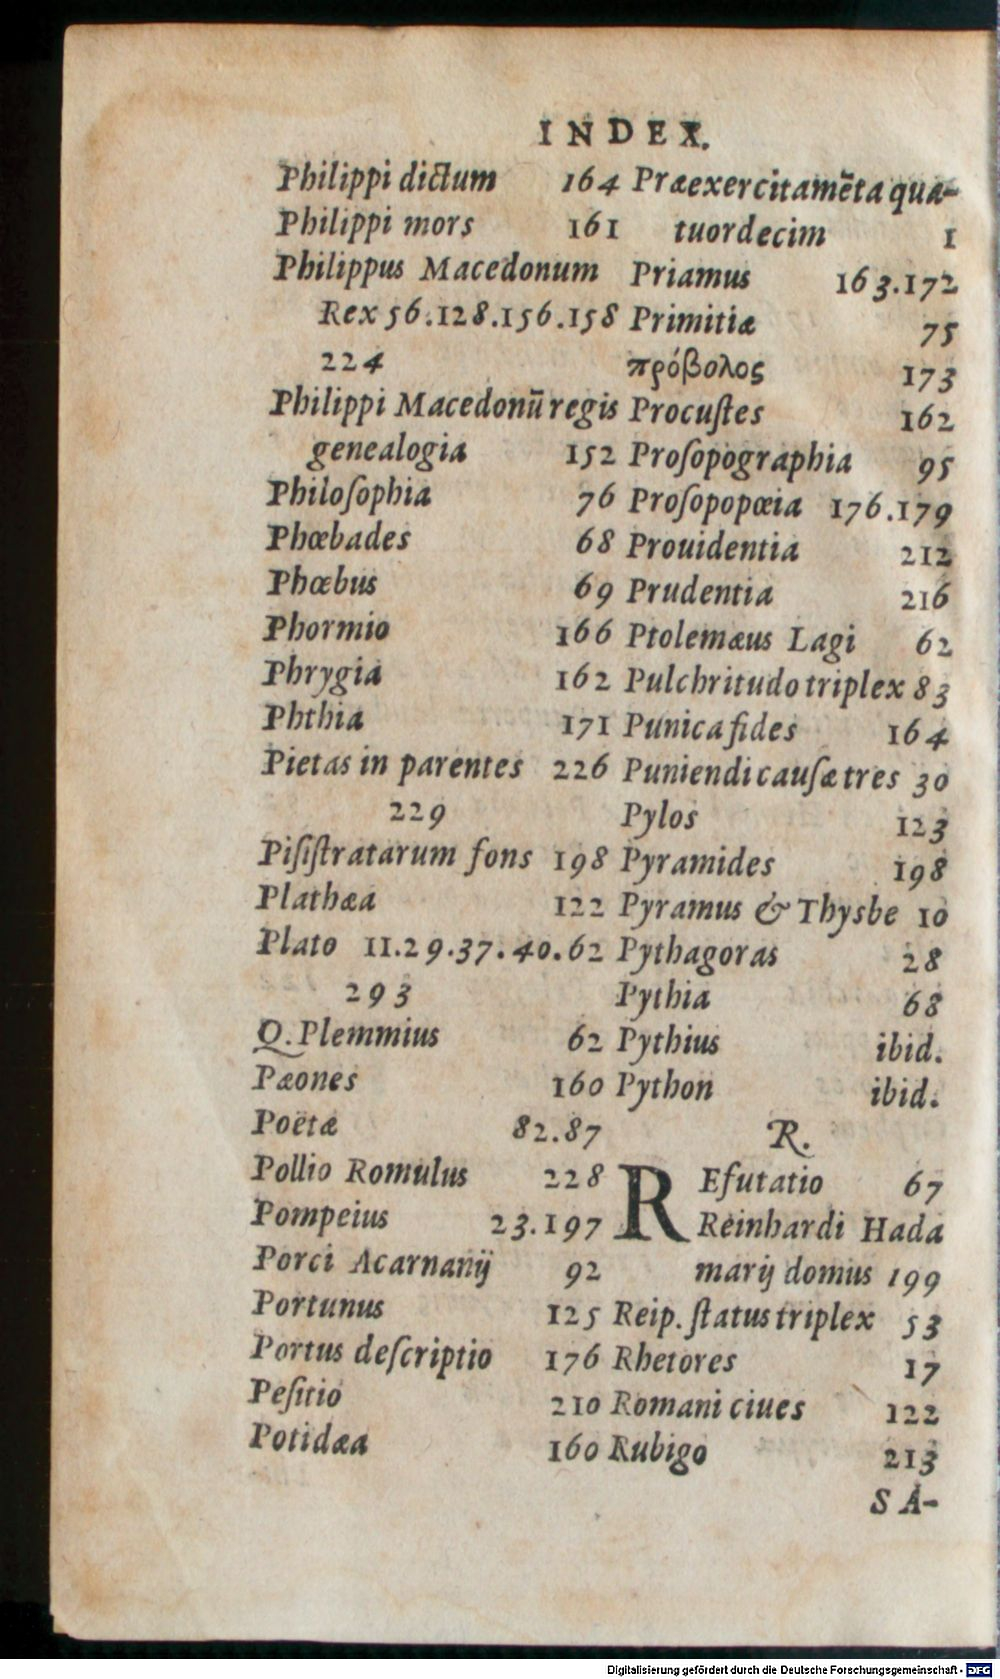 INDEX.
Philippi dictum 164
Philippi mors 161
Philippus Macedonum
Rex 56.128.156.158
224
Philippi Macedonū regis
genealogia 152
Philoſophia 76
Phœbades 68
Phœbus 69
Phormio 166
Phrygia 162
Phthia 171
Pietas in parentes 226
229
Piſiſtratarum fons 198
Plathæa 122
Plato 11.29.37.40.62
293
Q. Plemmius 62
Pæones 160
Poëtæ 82.87
Pollio Romulus 228
Pompeius 23.197
Porci Acarnanij 92
Portunus 125
Portus deſcriptio 176
Peſitio 210
Potidæa 160
Præexercitamēta qua-
tuordecim 1
Priamus 163.172
Primitiæ 75
πρόβολος 173
Procuſtes 162
Proſopographia 95
Proſopopœia 176.179
Prouidentia 212
Prudentia 216
Ptolemæus Lagi 62
Pulchritudo triplex 83
Punica fides 164
Puniendi cauſæ tres 30
Pylos 123
Pyramides 198
Pyramus & Thysbe 10
Pythagoras 28
Pythia 68
Pythius ibid.
Python ibid.
R.
REfutatio 67
Reinhardi Hada
marij domus 199
Reip. ſtatus triplex 53
Rhetores 17
Romani ciues 122
Rubigo 213
SA-
Digitalisierung gefördert durch die Deutsche Forschungsgemeinschaft - DFG